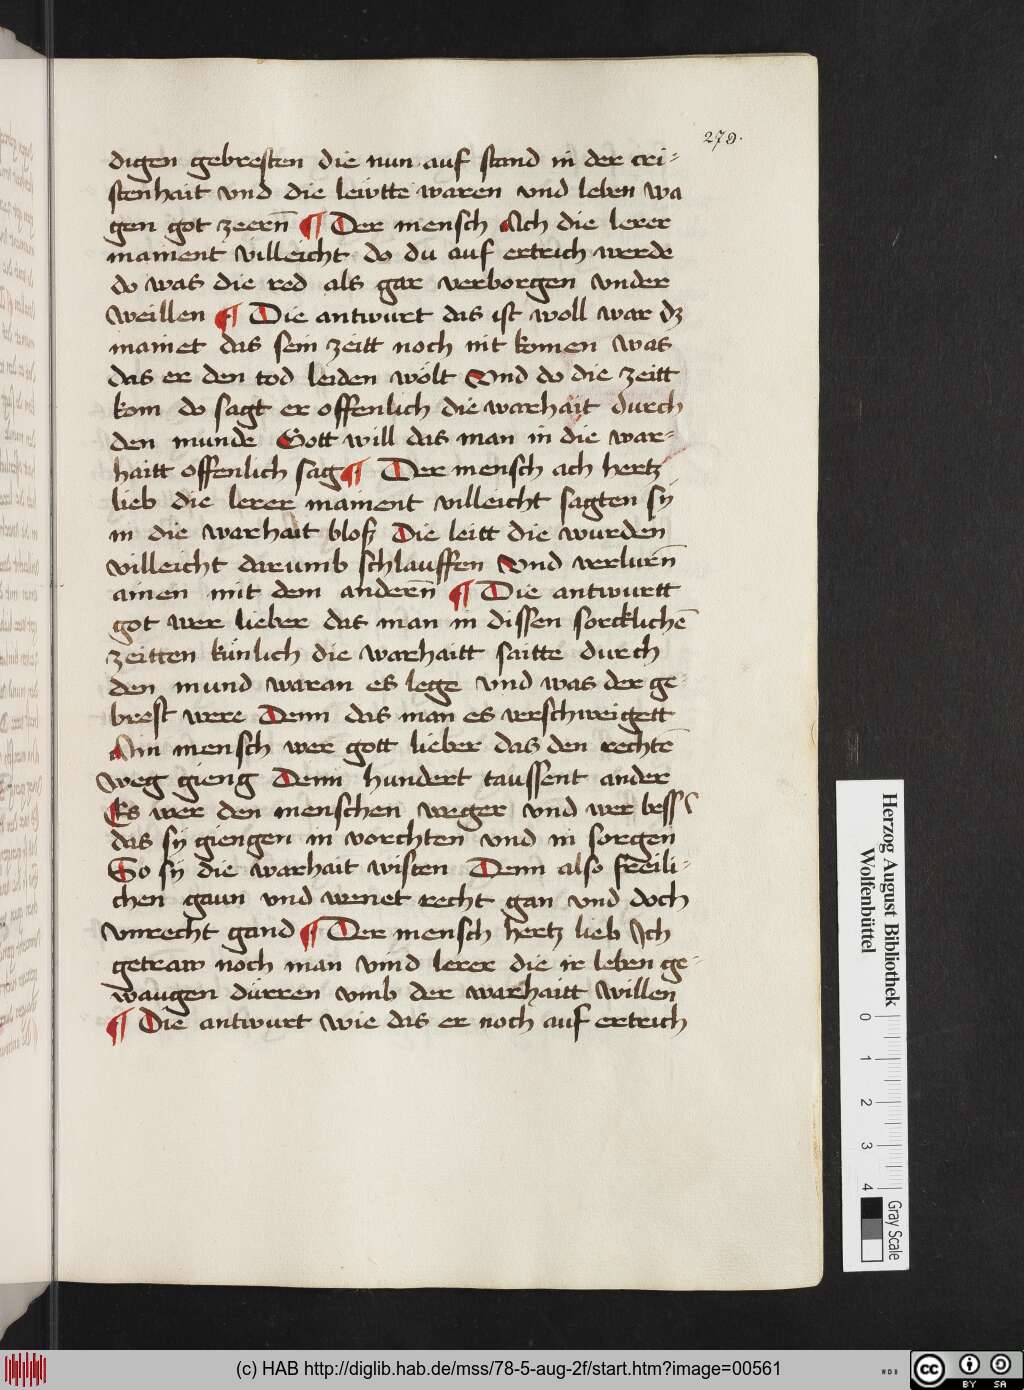 279.
digen gebresten die nun auf stand in der cri-
stenhait vnd die leẅtte waren vnd leben wa
gen got zeern̄ ¶ Der mensch Ach die lerer
mainent villeicht do du auf ertrich werde
do was die red als gar verborgen vnder
weillen ¶ Die antwurt das ist woll war dz
mainet das sein zeitt noch nit komen was
das er den tod leiden wölt Vnd do die zeitt
kom do sagt er offenlich die warhait durch
den munde Gott will das man in die war-
haitt offenlich sag ¶ Der mensch ach hertz
lieb die lerer mainent villeicht sagten sÿ
in die warhait bloß Die leitt die wurden
villeicht darumb schlauffen Vnd verlurn̄
ainen mit dem andern̄ ¶ Die antwurtt
got wer lieber das man in dissen sorcklichē
zeitten künlich die warhaitt saitte durch
den mund waran es lege vnd was der ge-
brest were Denn das man es verschweigett
Ain mensch wer gott lieber das den rechtē
weg gieng Denn hundert taussent ander
Es wer den menschen weger vnd wer bess
das sÿ giengen in vorchten vnd in sorgen
So sÿ die warhait wisten Denn also freili-
chen gaun vnd wenet recht gan vnd doch
vnrecht gand ¶ Der mensch hertz lieb Ich
getraw noch man vind lerer die ir leben ge-
waugen dürren vmb der warhaitt willen
¶ Die antwurt wie das er noch auf ertrich
Herzog August Bibliothek
Wolfenbüttel
0 1 2 3 4
Gray Scale
(c) HAB http://diglib.hab.de/mss/78-5-aug-2f/start.htm?image=00561
cc BY SA